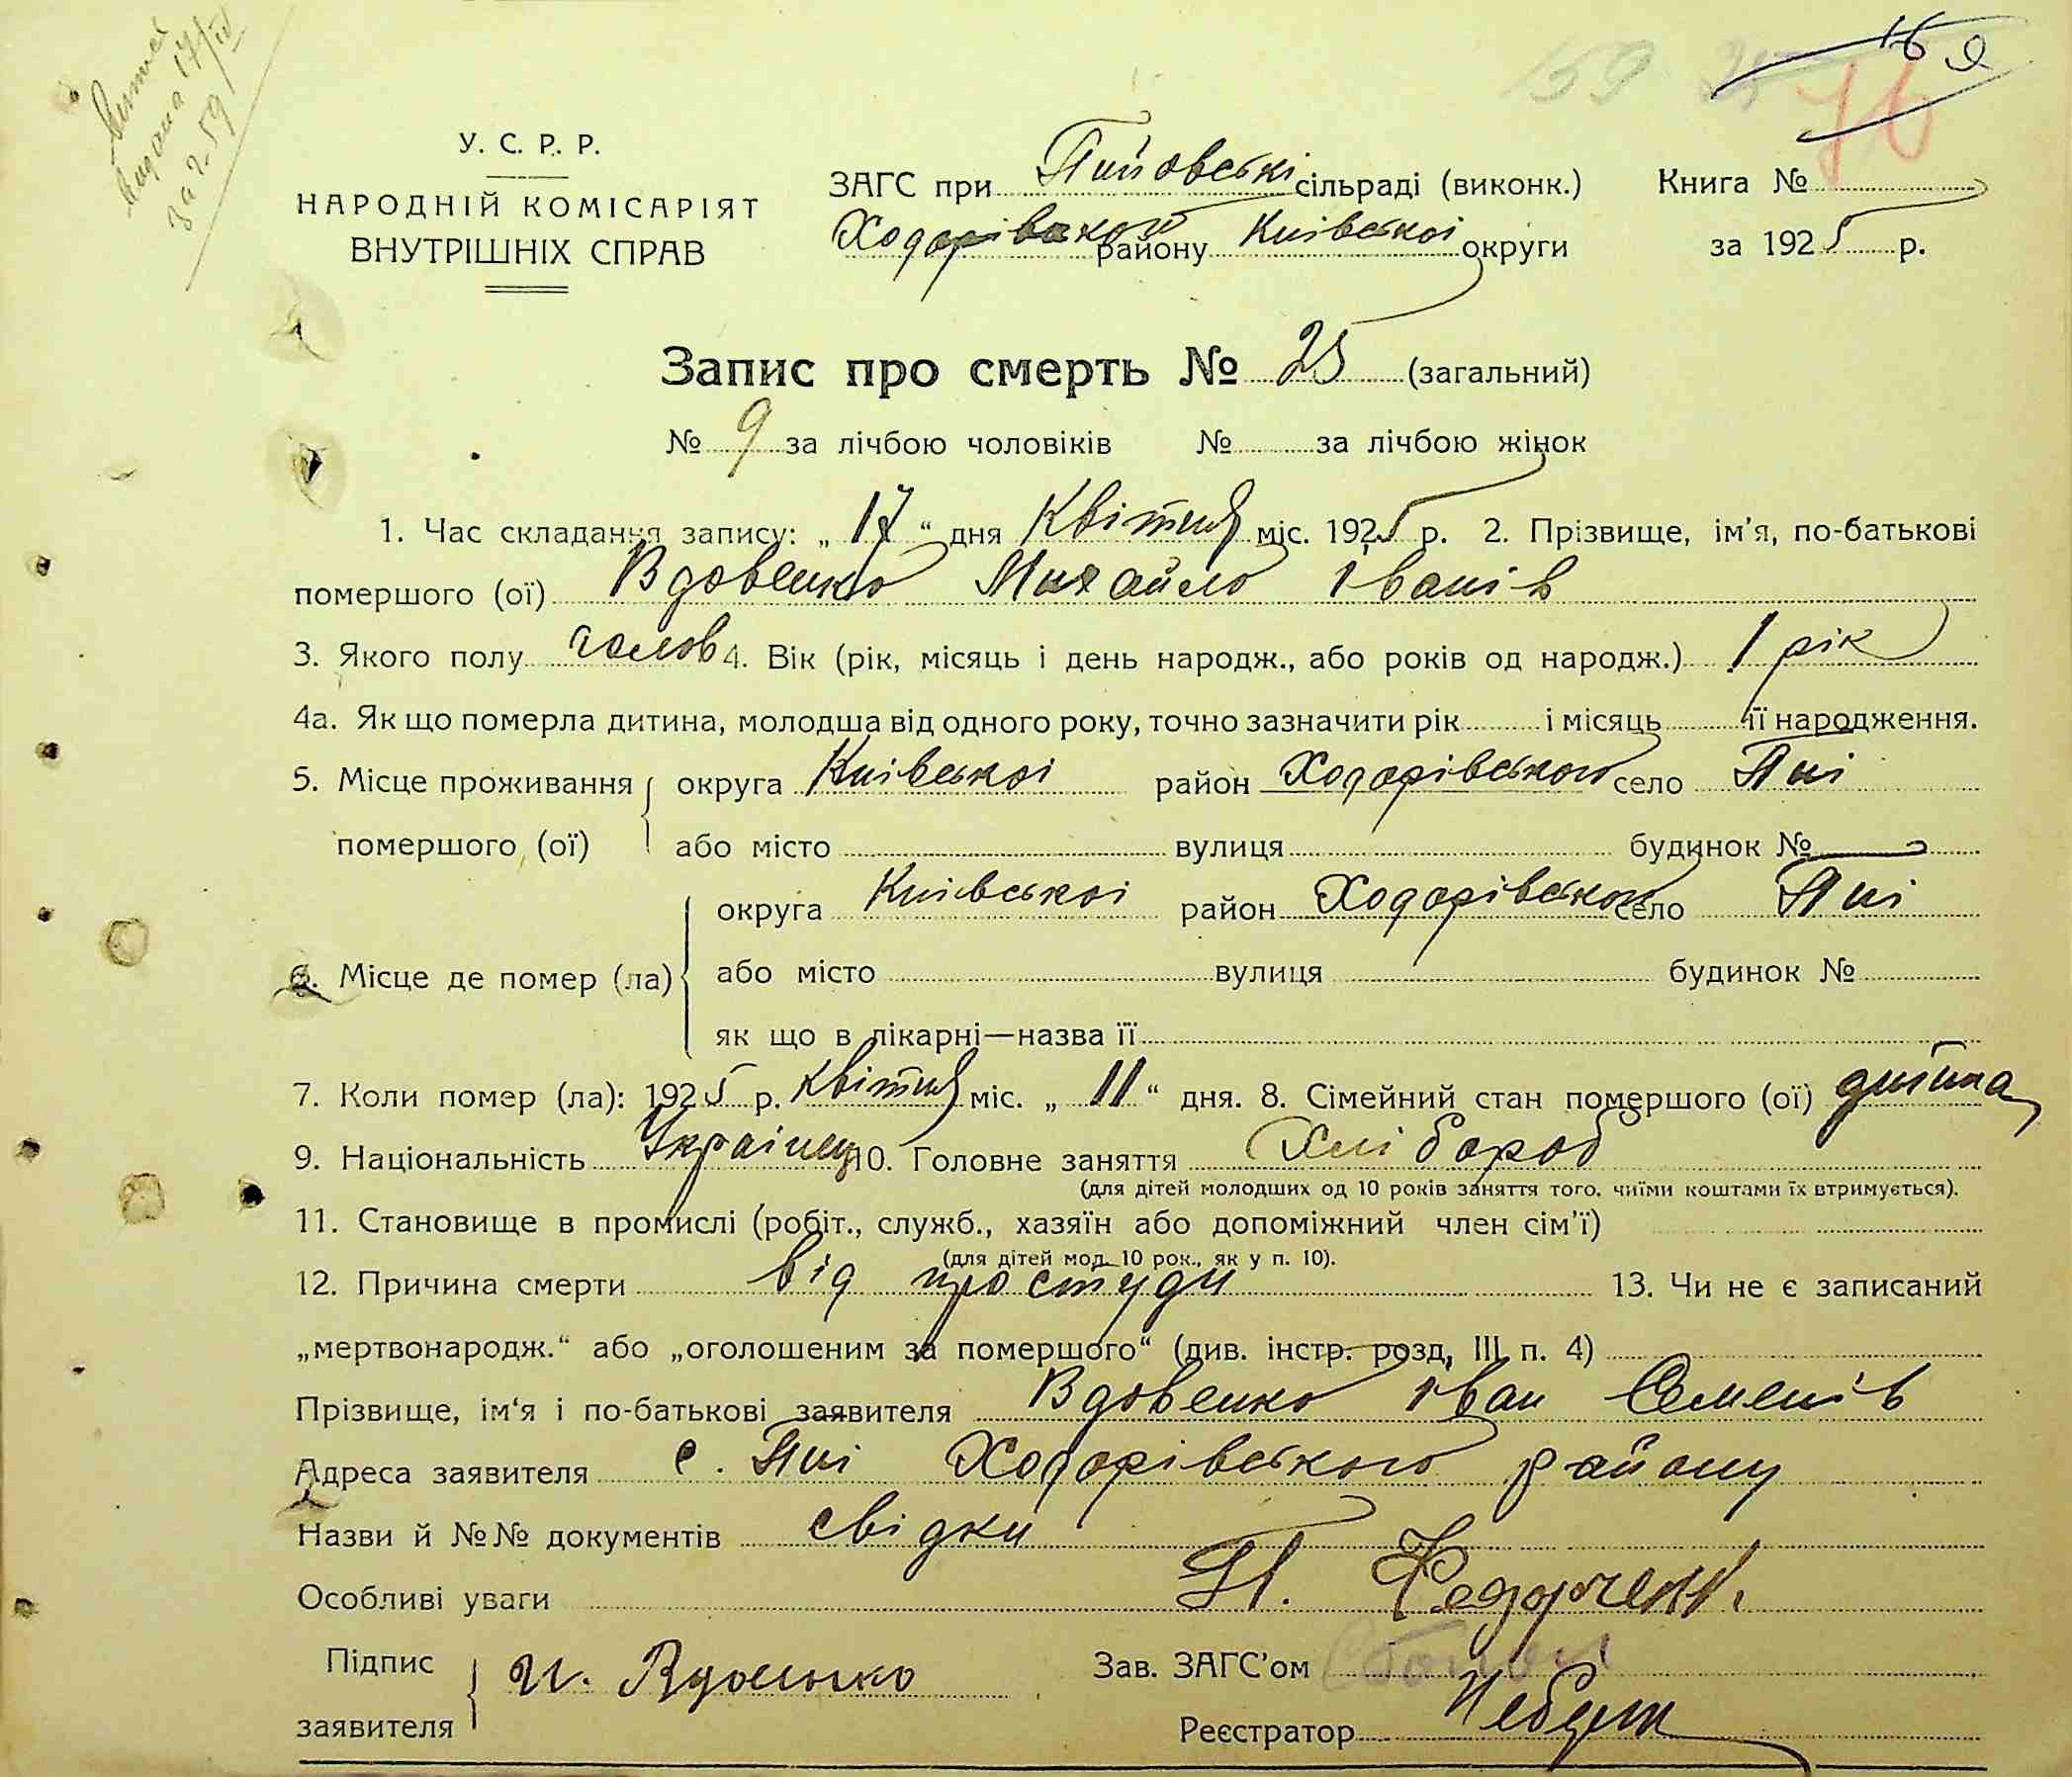 159
16 9
76
У. С. Р. Р.
НАРОДНІЙ КОМІСАРІЯТ
ВНУТРІШНІХ СПРАВ
ЗАГС при Пійовські сільраді (виконк.) Книга №
Ходорівского району Київської округи за 1925 р.
Запис про смерть № 25 (загальний)
№ 9 за лічбою чоловіків № за лічбою жінок
1. Час складання запису: „ 17 “ дня Квітня міс. 1925 р. 2. Прізвище, ім'я, по-батькові
помершого (ої) Вдовенко Михайло Іванів
3. Якого полу чолов 4. Вік (рік, місяць і день народж., або років од народж.) 1 рік
4а. Як що померла дитина, молодша від одного року, точно зазначити рік і місяць її народження.
5. Місце проживання округа Київскої район Ходорівського село Пії
помершого (ої) або місто вулиця будинок №
округа Київської район Ходорівського село Пії
6. Місце де помер (ла) або місто вулиця будинок №
як що в лікарні—назва її
7. Коли помер (ла): 1925 р. квітня міс. „ 11 “ дня. 8. Сімейний стан помершого (ої) дитина
9. Національність Українец 10. Головне заняття Хлібороб
(для дітей молодших од 10 років заняття того, чиїми коштами їх втримується).
11. Становище в промислі (робіт., служб., хазяїн або допоміжний член сім'ї)
(для дітей мод. 10 рок., як у п. 10).
12. Причина смерти від простуди 13. Чи не є записаний
„мертвонародж.“ або „оголошеним за помершого“ (див. інстр. розд, III п. 4)
Прізвище, ім'я і по-батькові заявителя Вдовенко Іван Семенів
Адреса заявителя с. Пії Ходорівського району
Назви й №№ документів свідки
Особливі уваги П. Федорченк.
Підпис заявителя И. Вдовенко Зав. ЗАГС'ом
Реєстратор